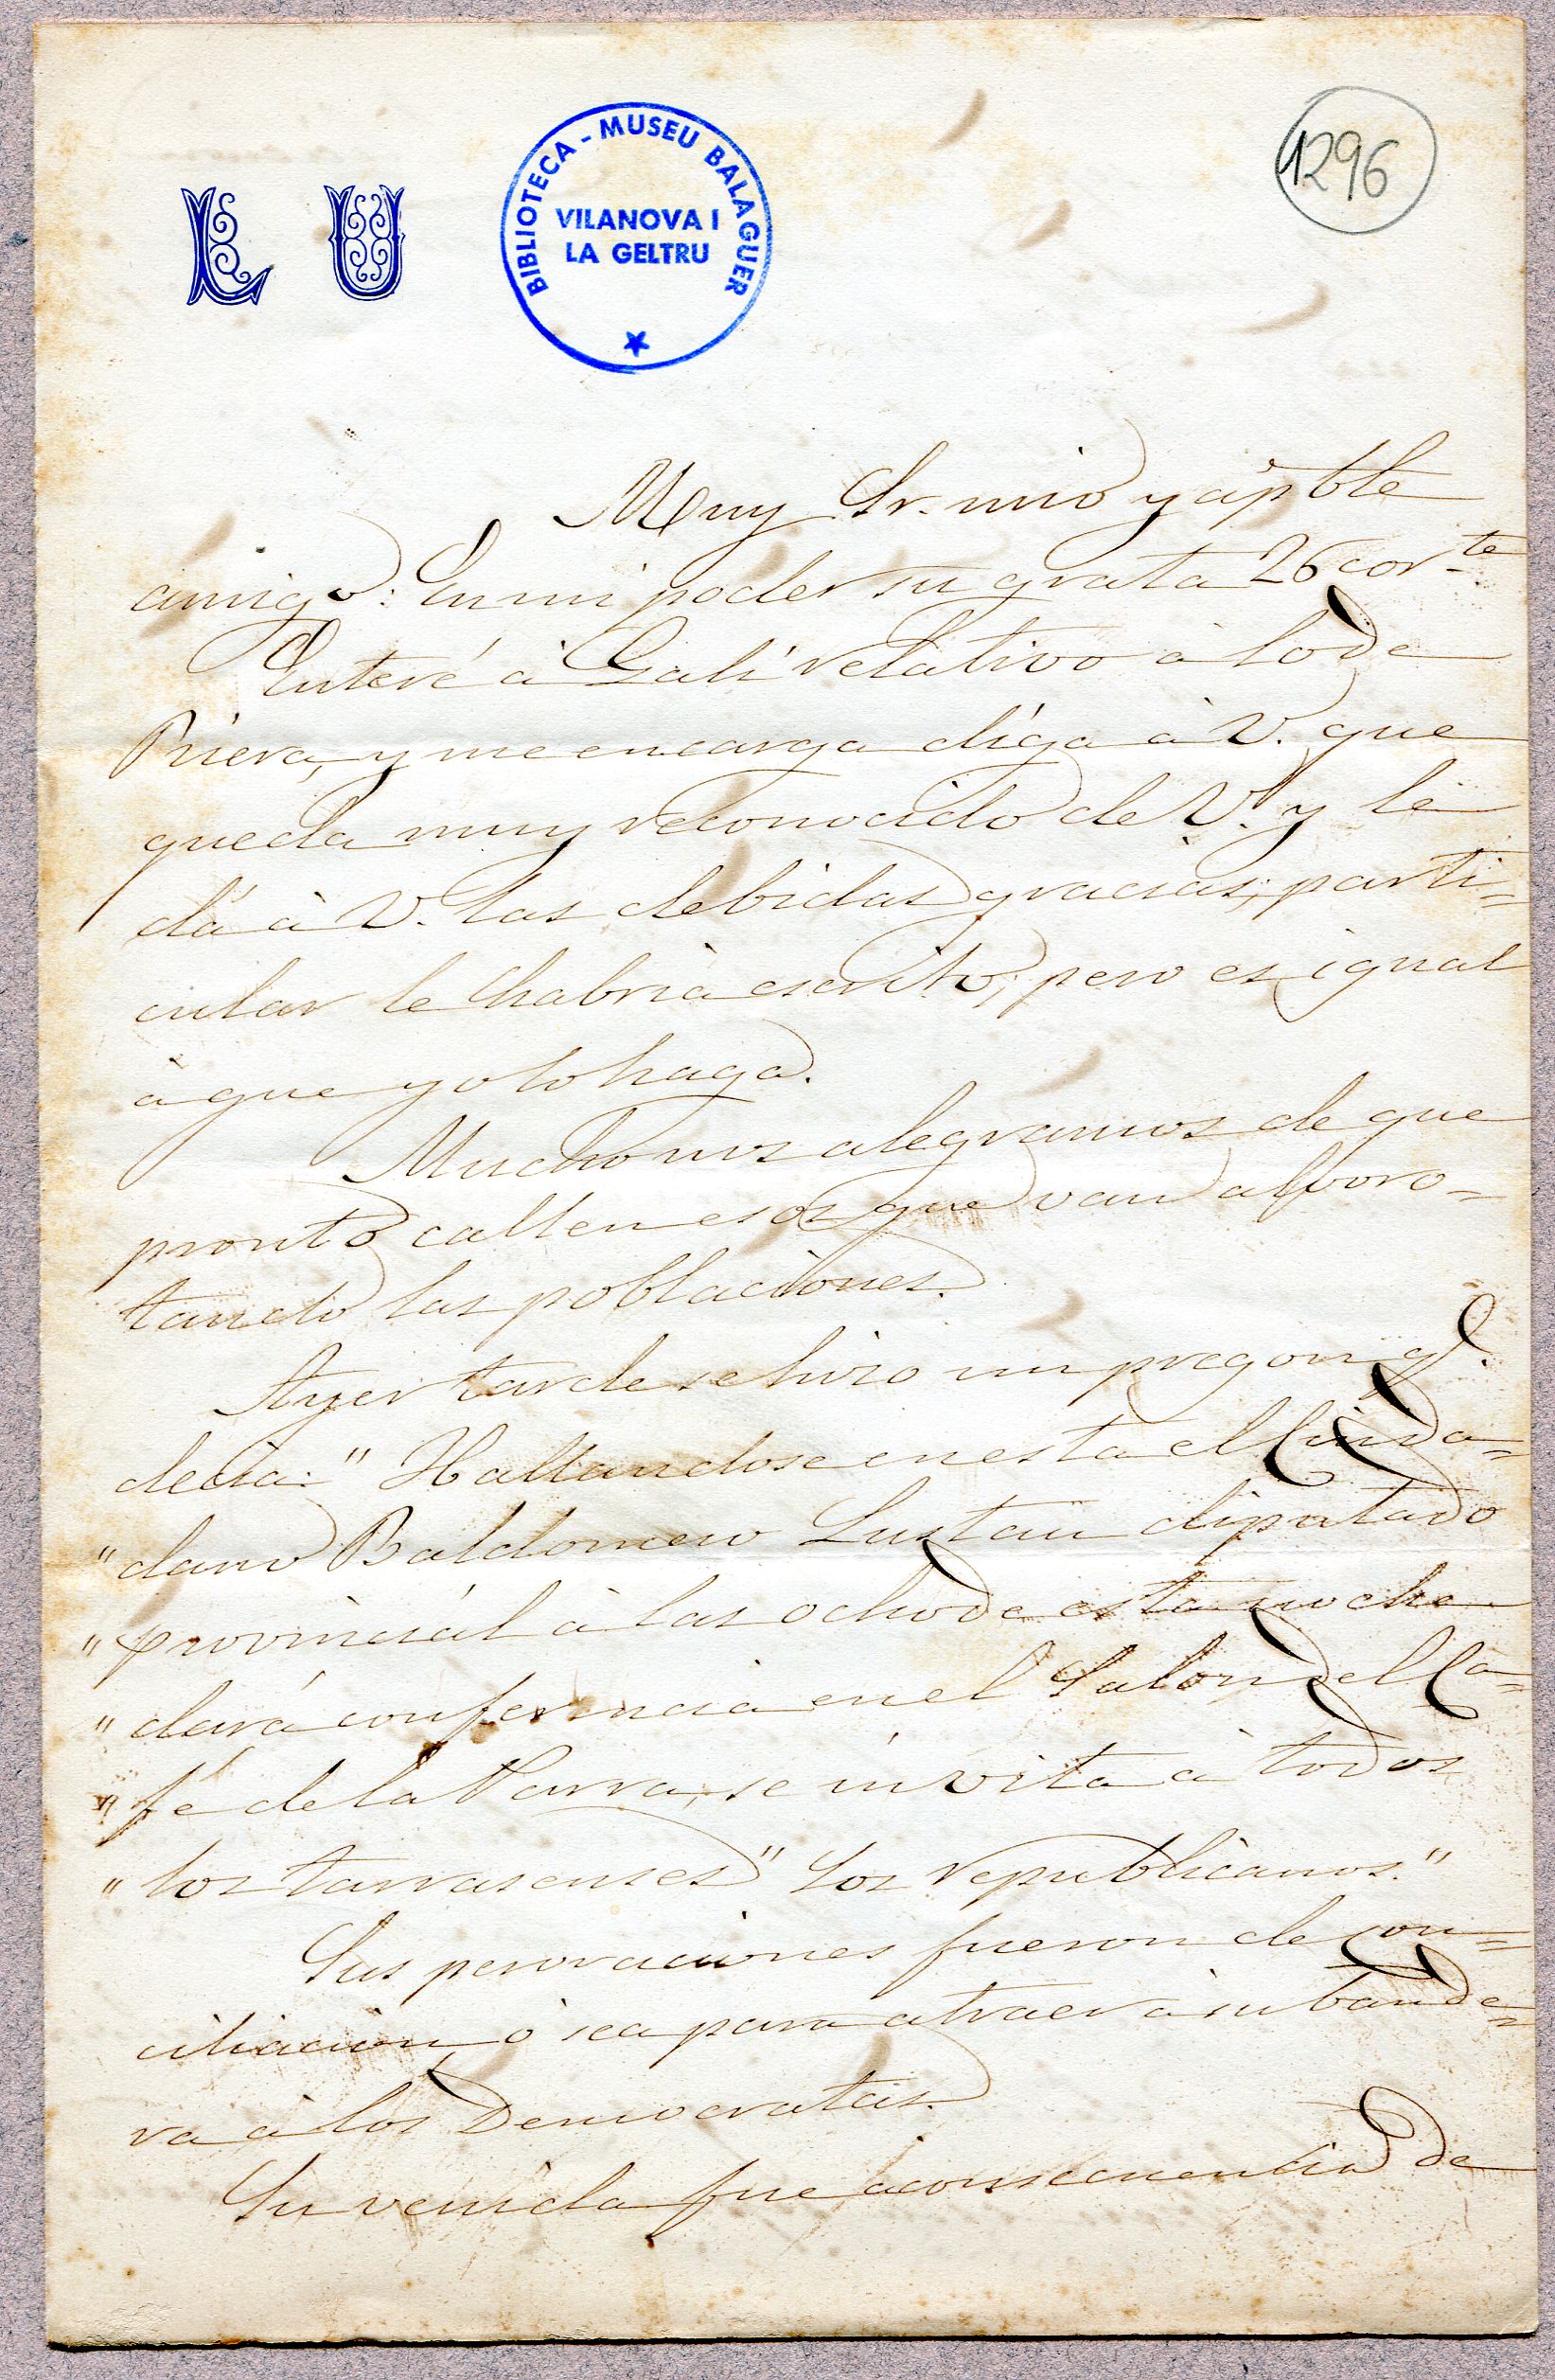 L U
BIBLIOTECA - MUSEU BALAGUER
VILANOVA I
LA GELTRU
1296
Muy Sr. mio y apble
amigo: En mi poder su grata 26 corte.
Enteré à Galí relativo à lo de
Riera, y me encarga diga à V. que
queda muy reconocido de V. y le
dá à V. las debidas gracias; parti=
cular le habria escrito; pero es igual
à que yo lo haga.
Mucho nos alegramos de que
pronto callen esos que van alboro=
tando las poblaciones.
Ayer tarde se hizo un pregon q.
decia: "Hallandose en esta el Ciuda=
"dano Baldomero Lostau diputado
"provincial à las ocho de esta noche
"dará conferencia en el Salon del Ca=
"fé de la Parra, se invita à todos
"los tarrasenses" Los republicanos."
Sus peroraciones fueron de con=
ciliacion ò sea para atraer à su bande=
ra à los Democratas.
Su venida fue à consecuencia de